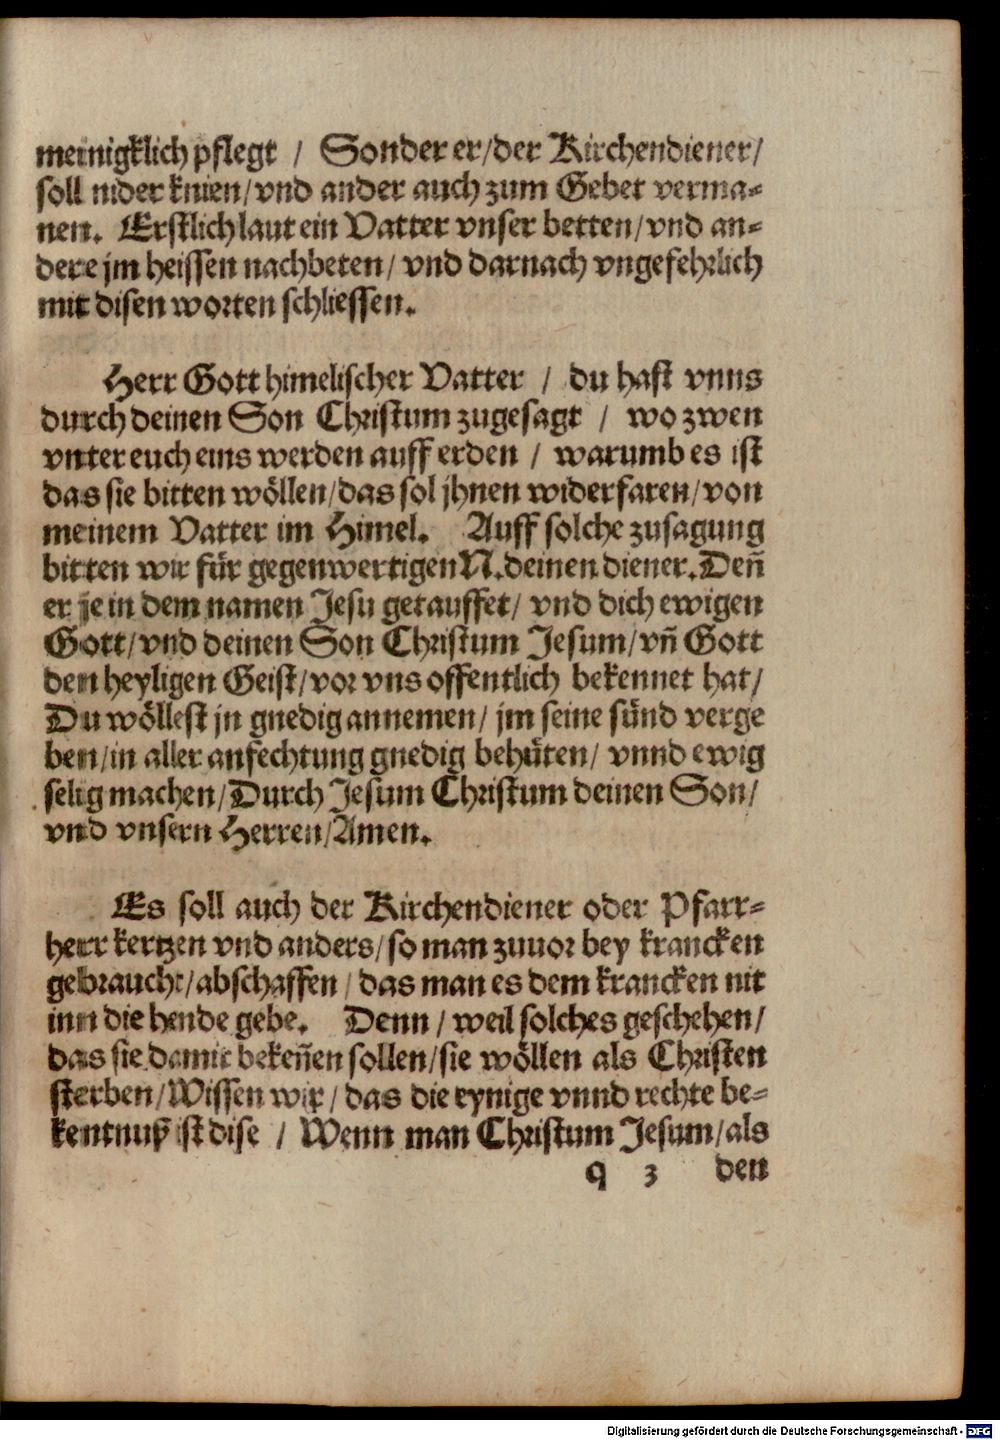 meinigklich pflegt / Sonder er/der Kirchendiener/
soll nider knien/vnd ander auch zum Gebet verma-
nen. Erstlich laut ein Vatter vnser betten/vnd an-
dere jm heissen nachbeten/ vnd darnach vngefehrlich
mit disen worten schliessen.
Herr Gott himelischer Vatter / du hast vnns
durch deinen Son Christum zugesagt / wo zwen
vnter euch eins werden auff erden / warumb es ist
das sie bitten wöllen/das sol jhnen widerfaren/von
meinem Vatter im Himel. Auff solche zusagung
bitten wir für gegenwertigen N. deinen diener. Deñ
er je in dem namen Jesu getauffet/ vnd dich ewigen
Gott/vnd deinen Son Christum Jesum/vñ Gott
den heyligen Geist/vor vns offentlich bekennet hat/
Du wöllest jn gnedig annemen/ jm seine sünd verge
ben/in aller anfechtung gnedig behüten/ vnnd ewig
selig machen/Durch Jesum Christum deinen Son/
vnd vnsern Herren/Amen.
Es soll auch der Kirchendiener oder Pfarr-
herr kertzen vnd anders/so man zuuor bey krancken
gebraucht/abschaffen/das man es dem krancken nit
inn die hende gebe. Denn / weil solches geschehen/
das sie damit bekeñen sollen/sie wöllen als Christen
sterben/Wissen wir/ das die eynige vnnd rechte be-
kentnuß ist dise / Wenn man Christum Jesum/als
q 3 den
Digitalisierung gefördert durch die Deutsche Forschungsgemeinschaft - DFG